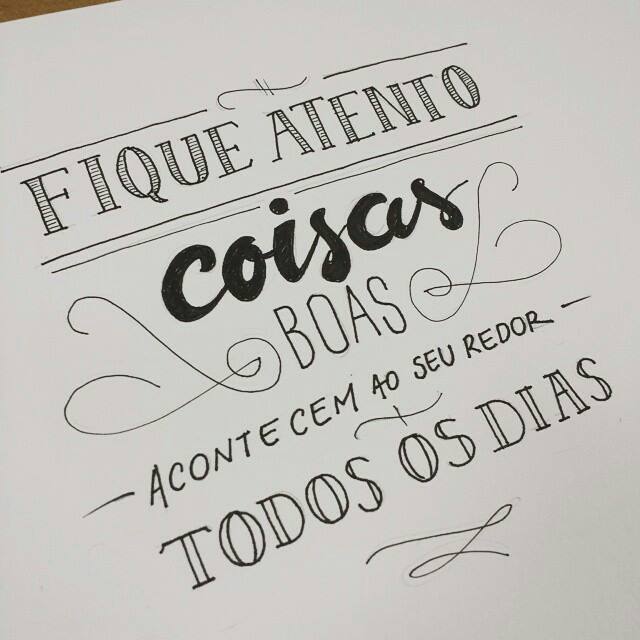 FIQUE ATENTO
coisas
BOAS
ACONTECEM AO SEU REDOR
TODOS OS DIAS